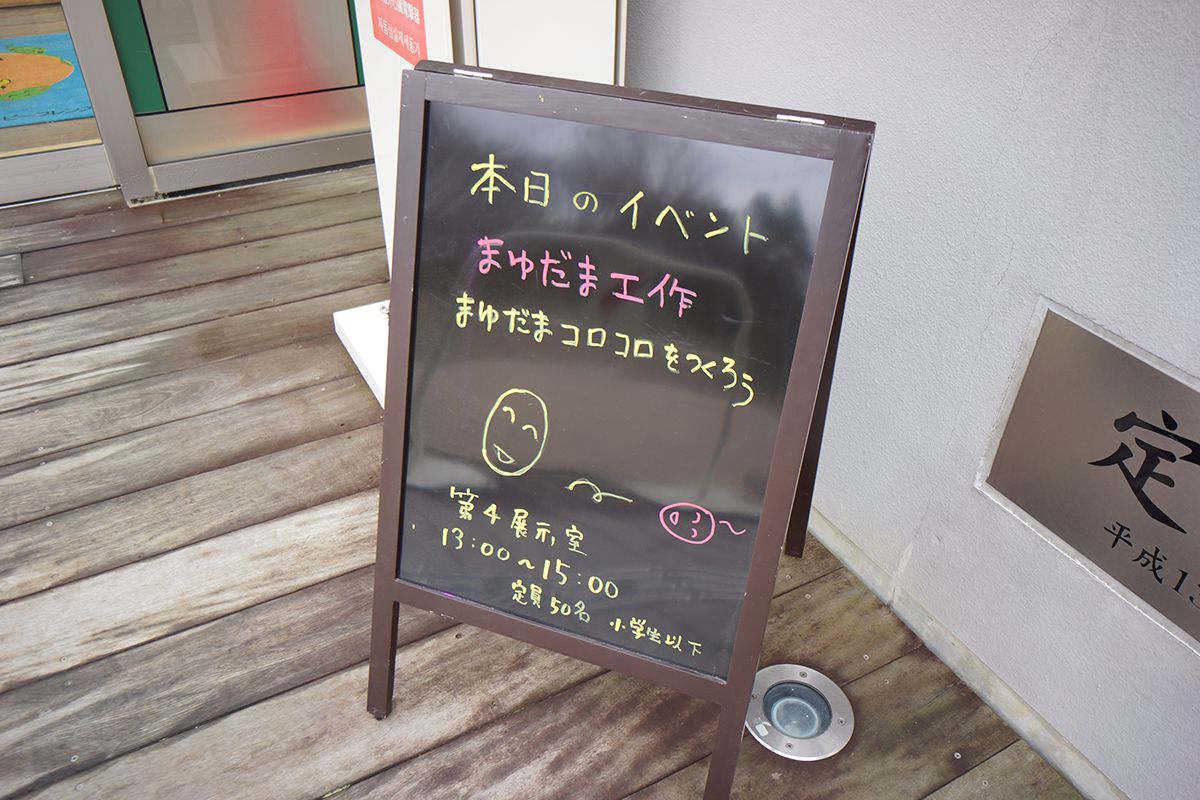 自動心室細動器
本日のイベント
まゆだま工作
まゆだまコロコロをつくろう
第4展示室
13:00~15:00
定員50名 小学生以下
定
平成1